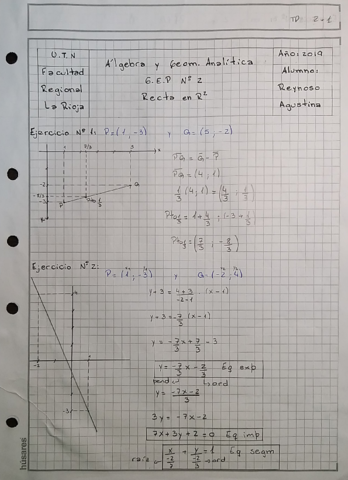 TP: 2-1
U.T.N
Facultad
Regional
La Rioja
Álgebra y Geom. Analítica
G.E.P Nº 2
Recta en R²
AÑO: 2019
Alumno:
Reynoso
Agustina
Ejercicio Nº 1: P=(1, -3) , Q=(5, -2)
PQ = Q - P
PQ = (4; 1)
1/3 (4; 1) = (4/3 ; 1/3)
= 1 + 4/3 ; (-3 + 1/3)
= (7/3 ; -8/3)
Ejercicio Nº 2: P=(1, -3) , Q=(-2, 4)
y+3 = 4+3/-2-1 . (x-1)
y+3 = -7/3 (x-1)
y = -7/3 x + 7/3 - 3
y = -7/3 x - 2/3 Eq exp
pend ord
y = -7x-2/3
3y = -7x-2
7x+3y+2=0 Eq imp
x/-2/7 + y/-2/3 = 1 Eq segm
raíz ord
húsares